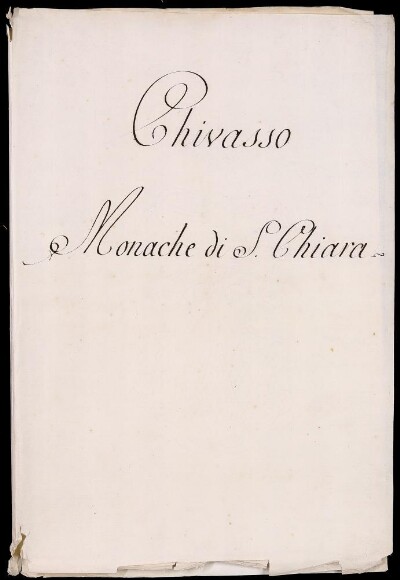 Chivasso
Monache di S. Chiara